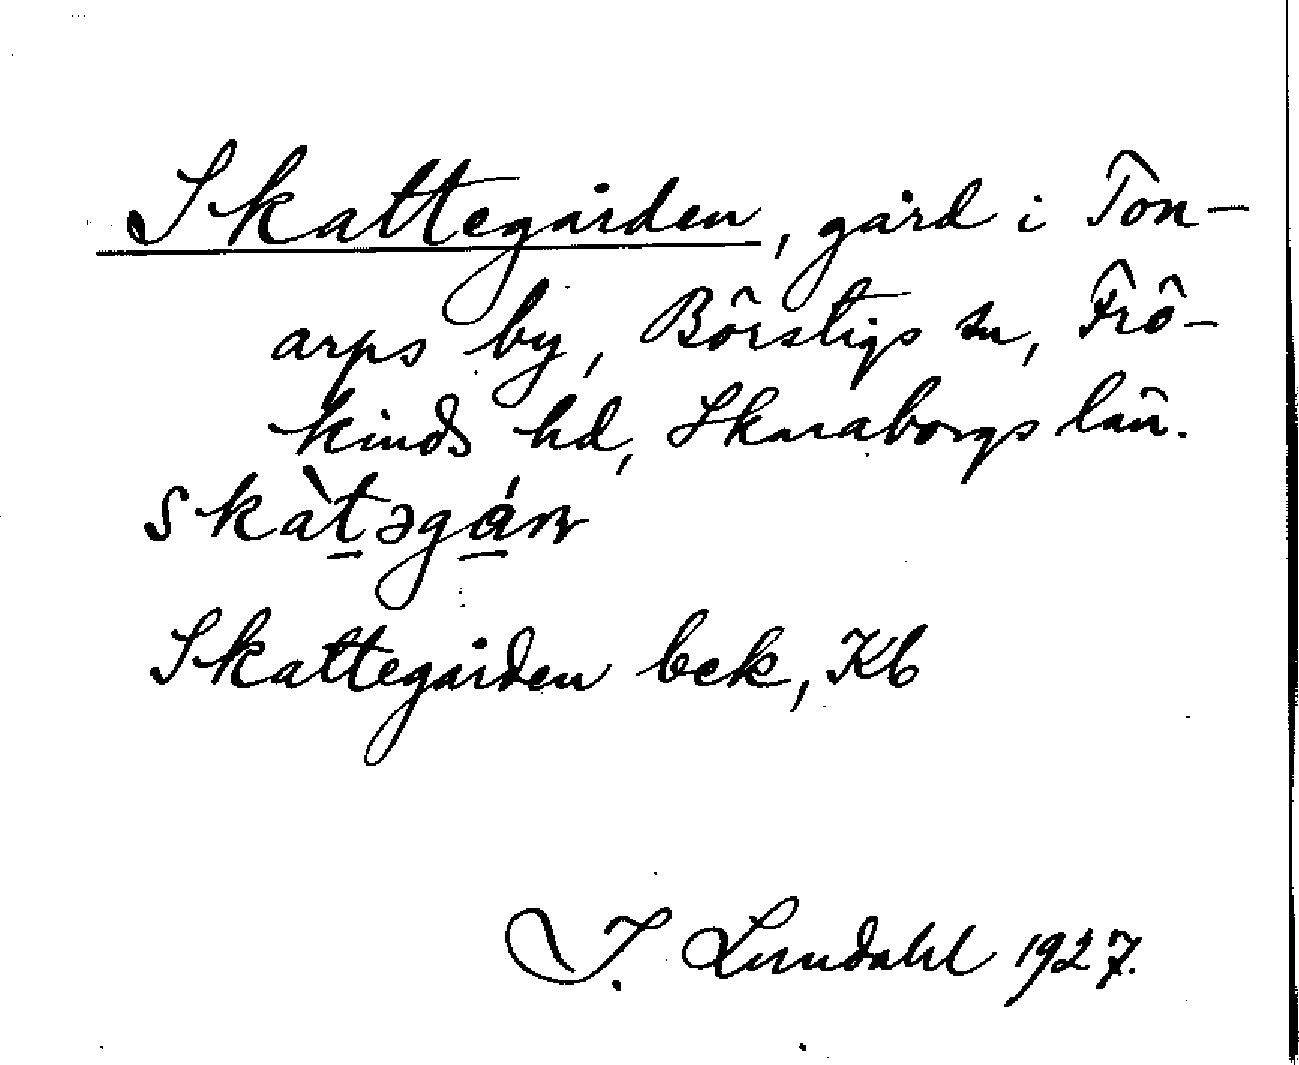 Skattegården, gård i Ton-
arps by, Börstigs sn, Frö-
kinds hd, Skaraborgs län.
skàtəgán
Skattegården bek, Kb
I. Lundahl 1927.